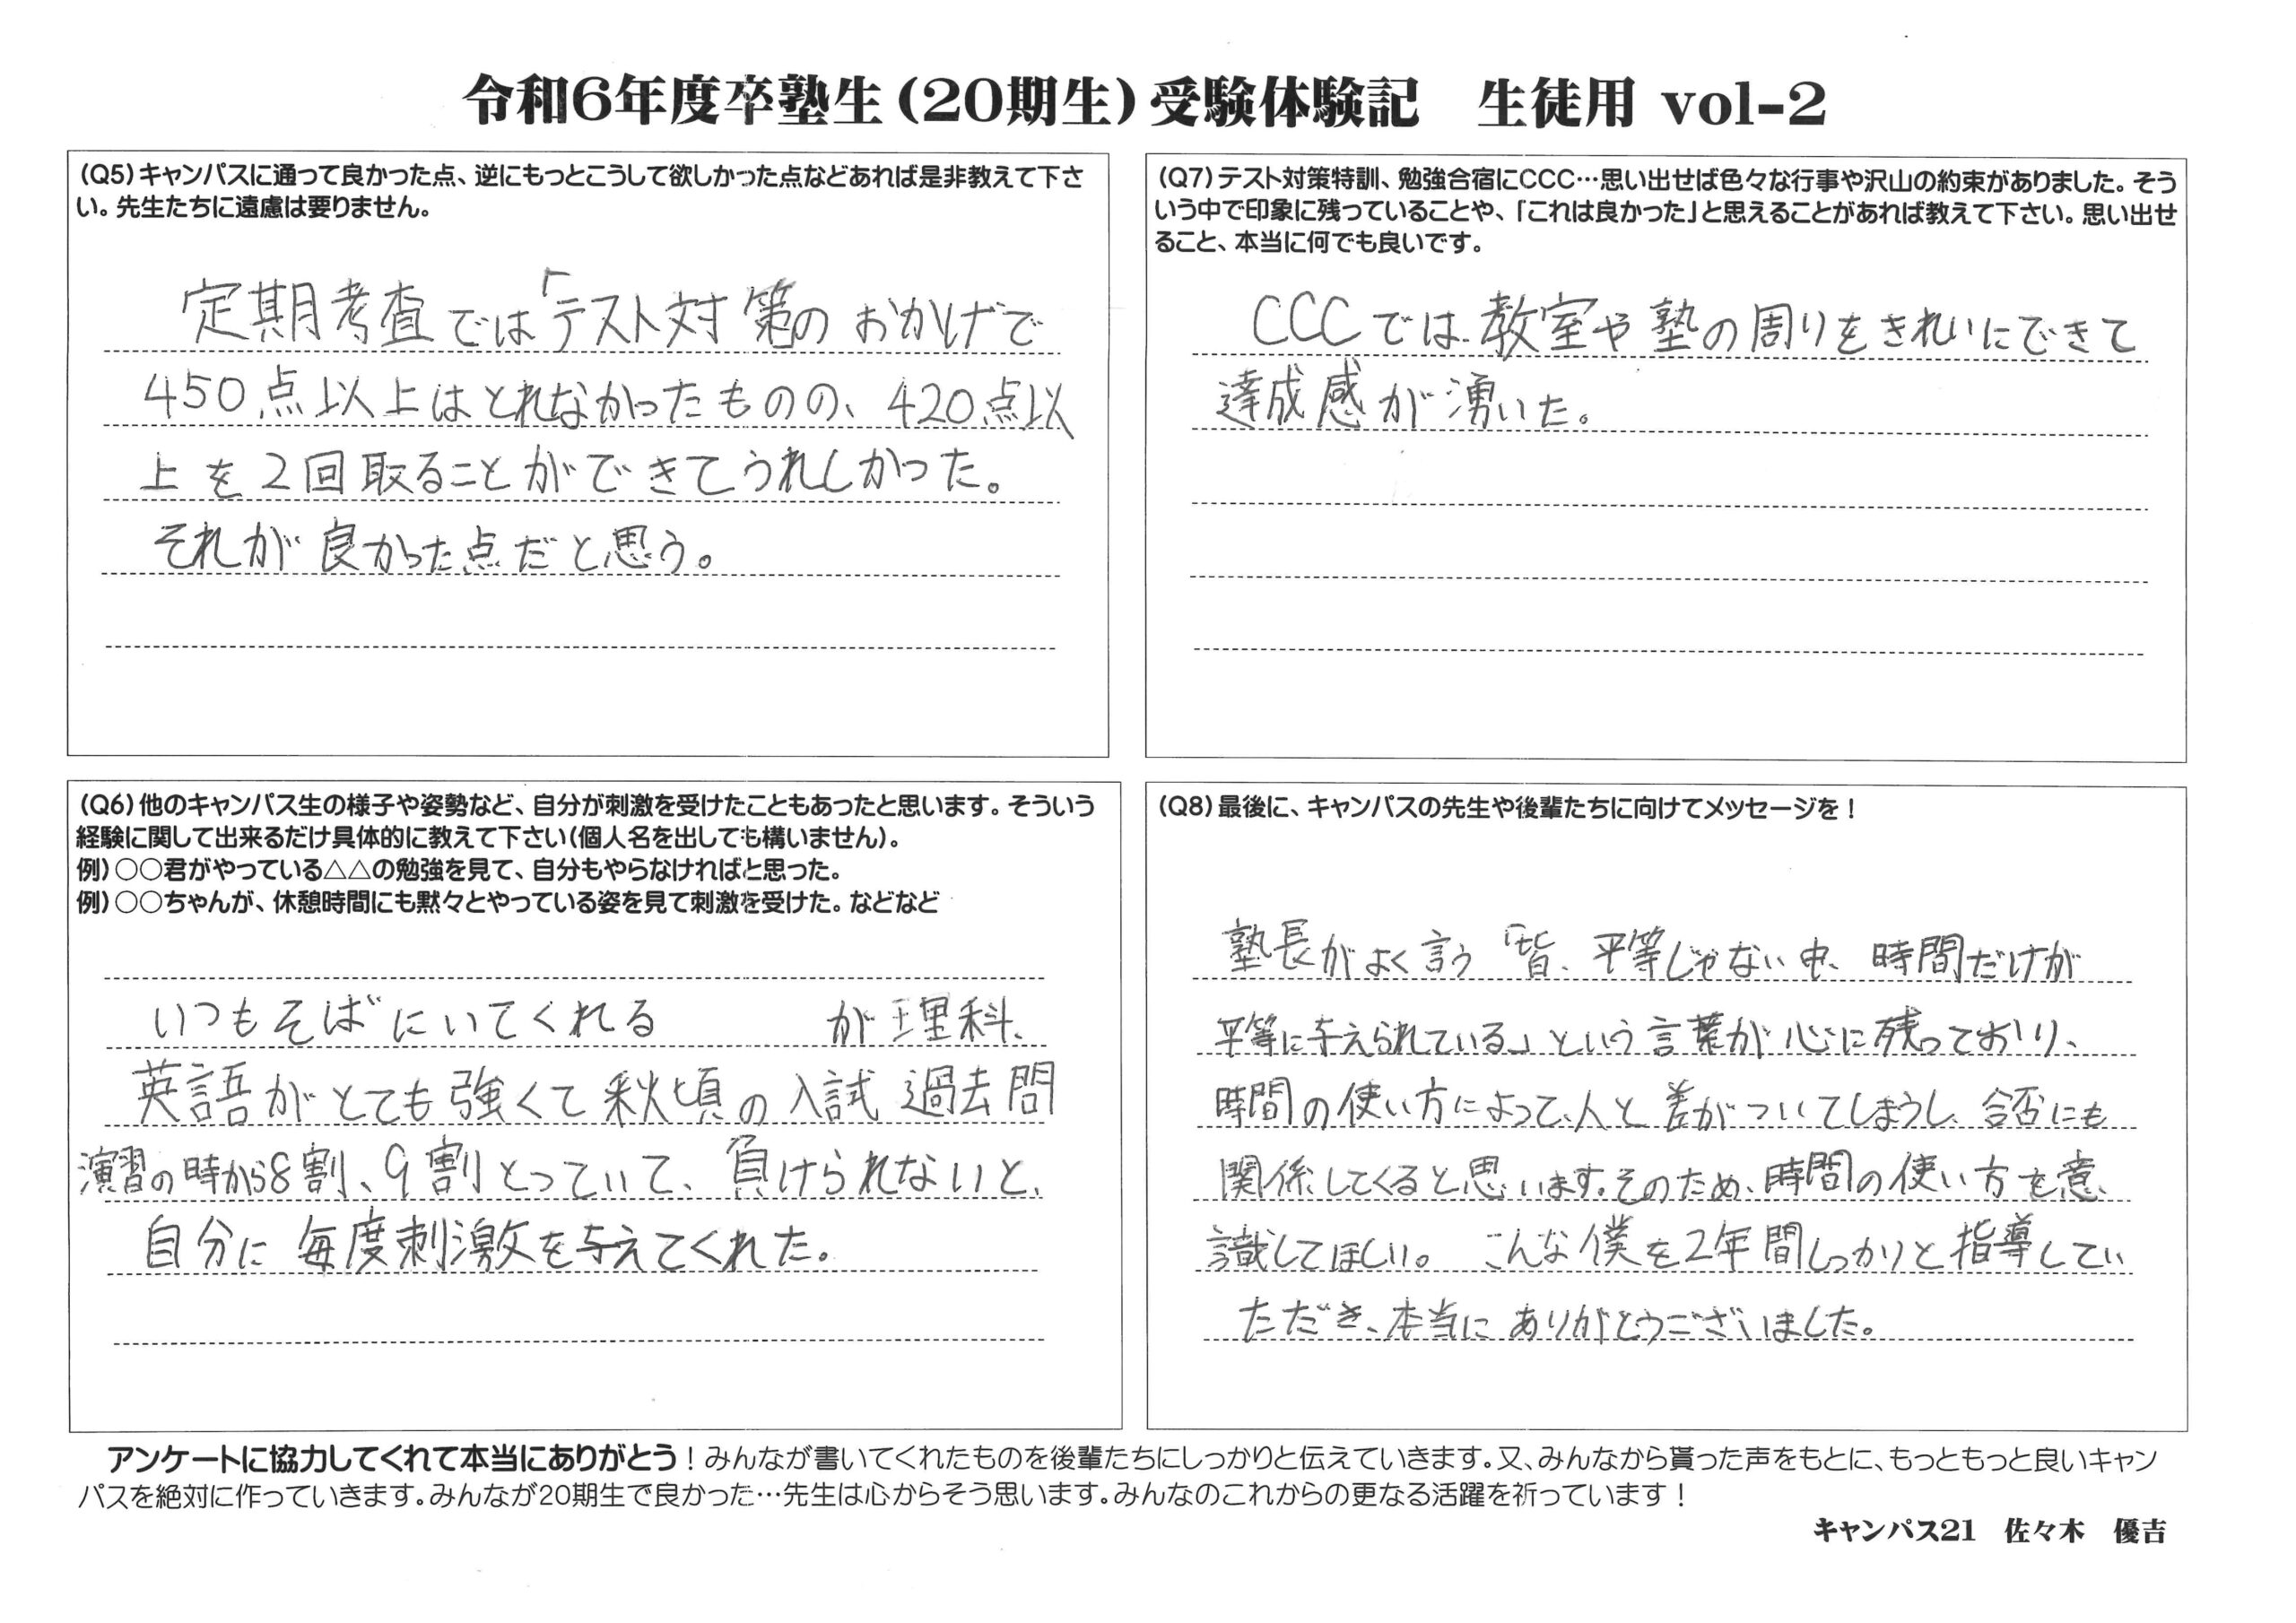 令和6年度卒塾生（20期生）受験体験記　生徒用 vol-2
（Q5）キャンパスに通って良かった点、逆にもっとこうして欲しかった点などあれば是非教えて下さ
い。先生たちに遠慮は要りません。
定期考査では「テスト対策のおかげで
450点以上はとれなかったものの、420点以
上を2回取ることができてうれしかった。
それが良かった点だと思う。
（Q6）他のキャンパス生の様子や姿勢など、自分が刺激を受けたこともあったと思います。そういう
経験に関して出来るだけ具体的に教えて下さい（個人名を出しても構いません）。
例）○○君がやっている△△の勉強を見て、自分もやらなければと思った。
例）○○ちゃんが、休憩時間にも黙々とやっている姿を見て刺激を受けた。などなど
いつもそばにいてくれる　　　が理科、
英語がとても強くて秋頃の入試過去問
演習の時から8割、9割とっていて、負けられないと、
自分に毎度刺激を与えてくれた。
（Q7）テスト対策特訓、勉強合宿にCCC…思い出せば色々な行事や沢山の約束がありました。そう
いう中で印象に残っていることや、「これは良かった」と思えることがあれば教えて下さい。思い出せ
ること、本当に何でも良いです。
CCCでは教室や塾の周りをきれいにできて
達成感が湧いた。
（Q8）最後に、キャンパスの先生や後輩たちに向けてメッセージを！
塾長がよく言う「皆、平等じゃない中、時間だけが
平等に与えられている」という言葉が心に残っており、
時間の使い方によって、人と差がついてしまうし、合否にも
関係してくると思います。そのため、時間の使い方を意
識してほしい。こんな僕を2年間しっかりと指導してい
ただき、本当にありがとうございました。
アンケートに協力してくれて本当にありがとう！みんなが書いてくれたものを後輩たちにしっかりと伝えていきます。又、みんなから貰った声をもとに、もっともっと良いキャン
パスを絶対に作っていきます。みんなが20期生で良かった…先生は心からそう思います。みんなのこれからの更なる活躍を祈っています！
キャンパス21　佐々木　優吉